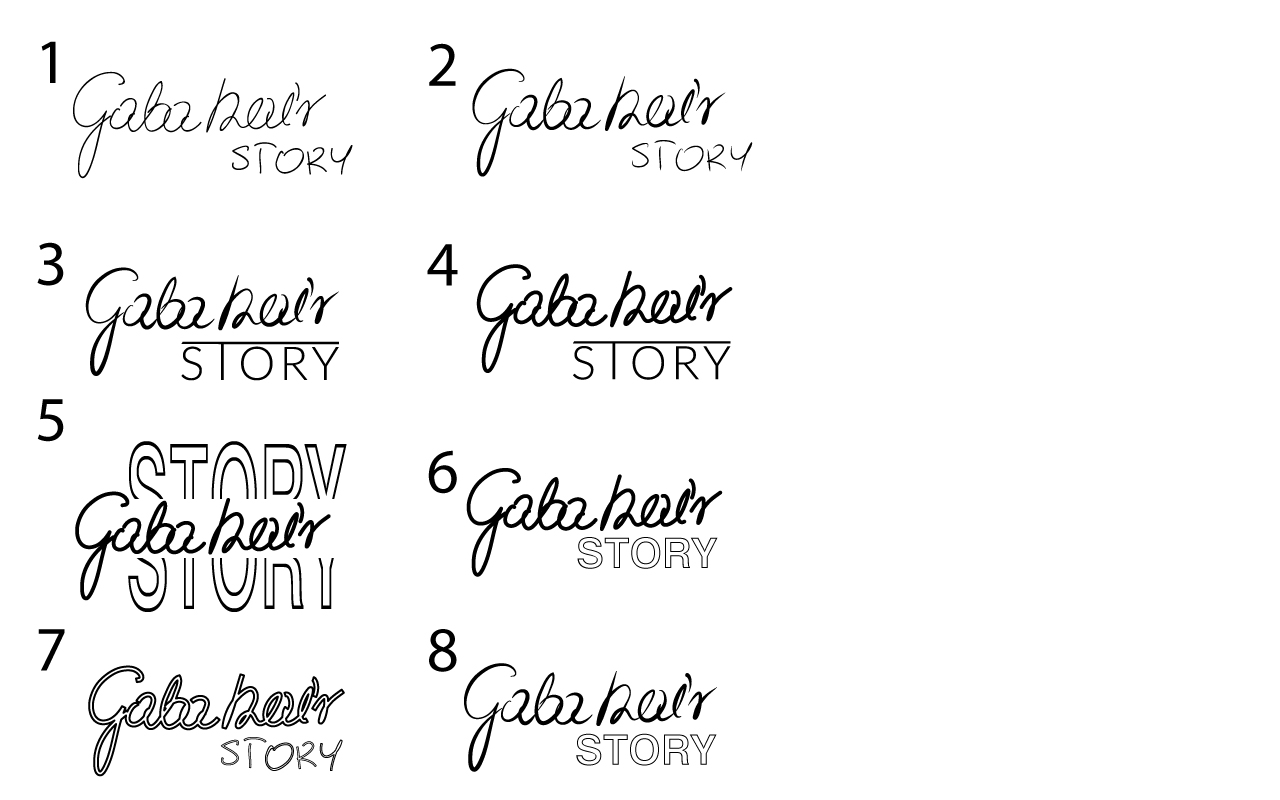 1
Gaba hair
STORY
2
Gaba hair
STORY
3
Gaba hair
STORY
4
Gaba hair
STORY
5
STORY
Gaba hair
6
Gaba hair
STORY
7
Gaba hair
STORY
8
Gaba hair
STORY